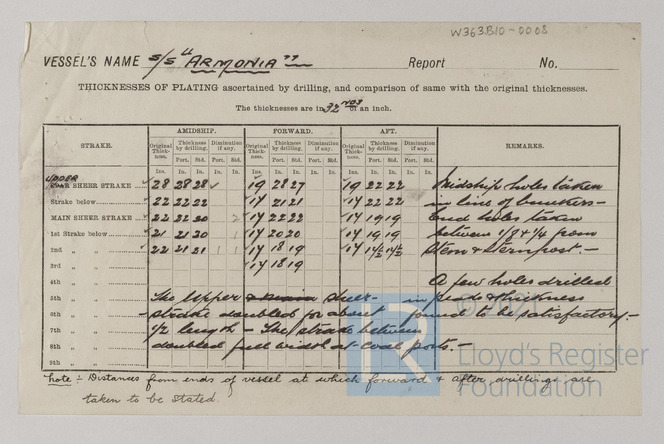 W363B10-0008
VESSEL'S NAME S/S "ARMONIA" Report No.
THICKNESSES OF PLATING ascertained by drilling, and comparison of same with the original thicknesses.
The thicknesses are in 32nds of an inch.
STRAKE. AMIDSHIP. FORWARD. AFT. REMARKS.
Original Thickness. Thickness by drilling. Diminution if any. Original Thickness. Thickness by drilling. Diminution if any. Original Thickness. Thickness by drilling. Diminution if any.
Port. Std. Port. Std. Port. Std. Port. Std. Port. Std. Port. Std.
Ins. In. In. In. In. Ins. In. In. In. In. Ins. In. In. In. In.
UPPER SHEER STRAKE 28 28 28 19 28 27 19 22 22 Midship holes taken
Strake below 22 22 22 17 21 21 17 22 22 in line of bunkers -
MAIN SHEER STRAKE 22 22 20 2 17 22 22 17 19 19 End holes taken
1st Strake below 21 21 20 1 17 20 20 17 19 19 between 1/8 & 1/4 from
2nd " " 22 21 21 1 1 17 18 19 17 17½ 17½ Stem & sternpost. -
3rd " " 17 18 19
4th " " A few holes drilled
5th " " The Upper sheer- in & thickness
6th " " strake doubled for about found to be satisfactory. -
7th " " 1/2 length - The strake between
8th " " doubled full width at coal ports. -
9th " "
Note :- Distances from ends of vessel at which forward & after drillings are
taken to be stated.
© Lloyd's Register
Foundation